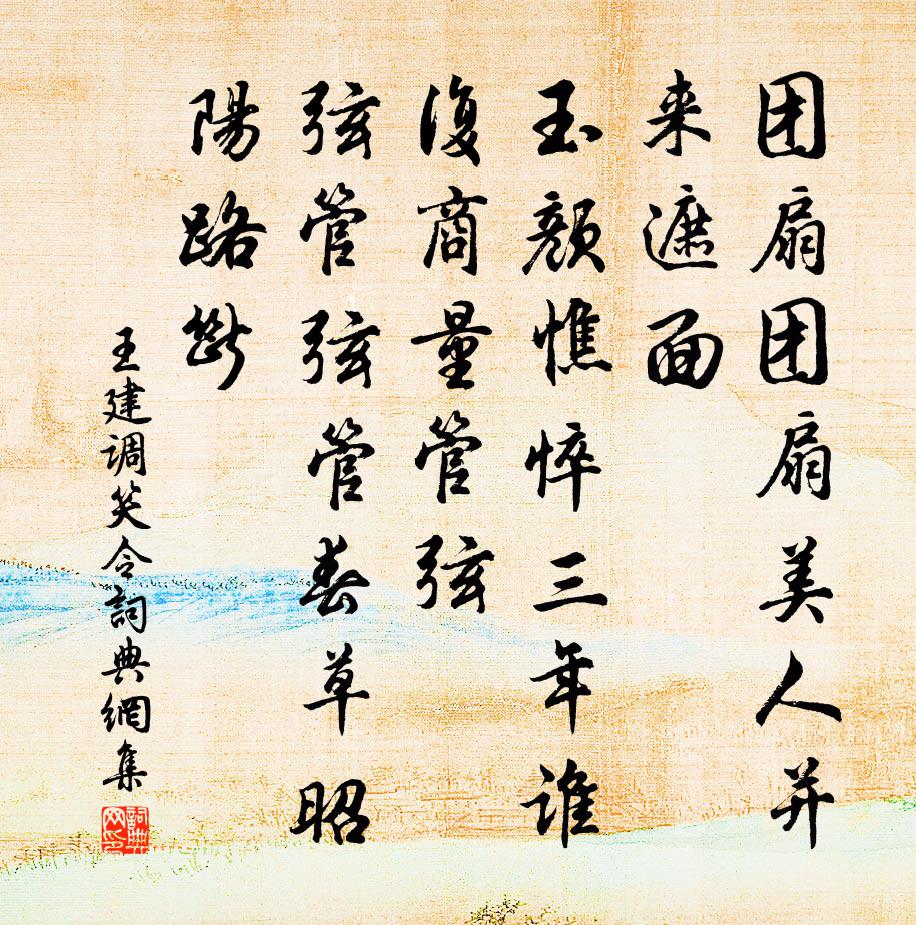 团扇团扇美人并
来遮面
玉颜憔悴三年谁
復商量管弦
弦管弦管春草昭
陽路斷
王建调笑令詞典網集
詞典網印